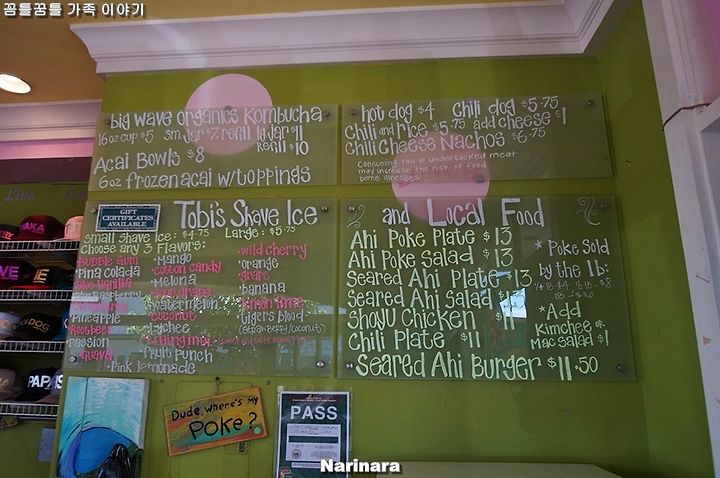 꼼틀꿈틀 가족 이야기
big wave organics Kombucha
16oz cup $5 sm Jar $7 refill lg Jar $11
Refill $10
Acai Bowls $8
6oz frozen acai w/toppings
hot dog $4 Chili dog $5.75
Chili and rice $5.75 add cheese $1
Chili Cheese Nachos $6.75
Consuming raw or undercooked meat
may increase the risk of food
borne illnesses
Live
GIFT
CERTIFICATES
AVAILABLE
Tobi's Shave Ice
Small Shave Ice: $4.75 Large: $5.75
Choose any 3 Flavors:
Bubble Gum
Pina Colada
Blue Vanilla
Pineapple
Rootbeer
Passion
Guava
Pink Lemonade
Mango
Cotton Candy
Melona
Watermelon
Coconut
Lychee
Li Hing Mui
Fruit Punch
Wild Cherry
Orange
Grape
Banana
Lemon Lime
Tiger's Blood
(Strawberry/Coconut)
and Local Food
Ahi Poke Plate $13
Ahi Poke Salad $13
Seared Ahi Plate $13
Seared Ahi Salad $11
Shoyu Chicken $11
Chili Plate $11
Seared Ahi Burger $11.50
* Poke Sold
by the lb:
* Add
Kimchee or
Mac Salad $1
AKA
DOG
PAPAS
Dude, where's my
Poke?
PASS
Narinara